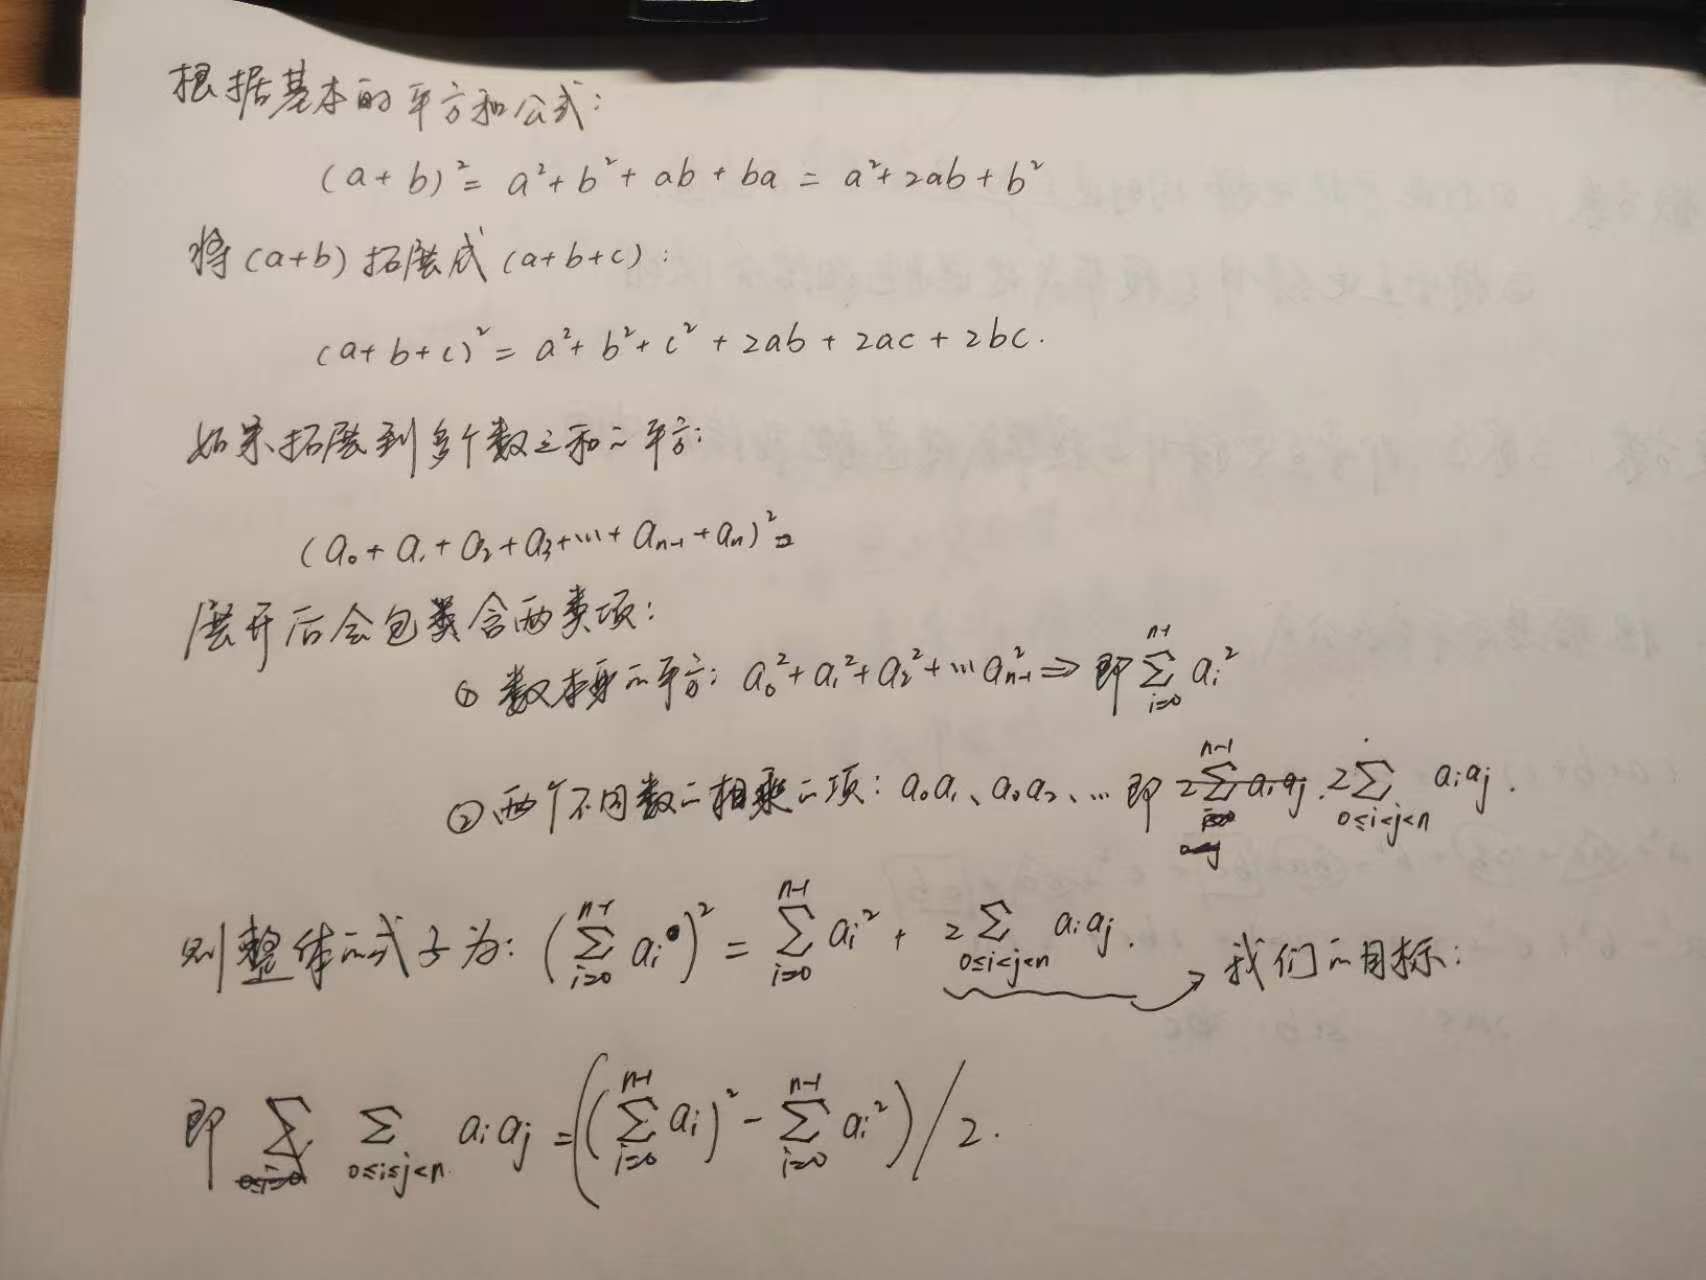 根据基本的平方和公式:
(a+b)² = a²+b²+ab+ba = a²+2ab+b²
将(a+b)拓展成(a+b+c):
(a+b+c)² = a²+b²+c²+2ab+2ac+2bc.
如果拓展到多个数之和的平方:
(a₀+a₁+a₂+a₃+…+aₙ₋₁+aₙ)²=
展开后会包含两类项:
① 数本身的平方: a₀²+a₁²+a₂²+…aₙ₋₁² ⇒ 即 ∑_{i=0}^{n-1} aᵢ²
② 两个不同数的相乘的项: a₀a₁、a₀a₂、… 即 2∑_{0≤i<j<n} aᵢaⱼ.
则整体的式子为: (∑_{i=0}^{n-1} aᵢ)² = ∑_{i=0}^{n-1} aᵢ² + 2∑_{0≤i<j<n} aᵢaⱼ. → 我们的目标:
即 ∑_{0≤i≤j<n} aᵢaⱼ = ((∑_{i=0}^{n-1} aᵢ)² - ∑_{i=0}^{n-1} aᵢ²)/2.